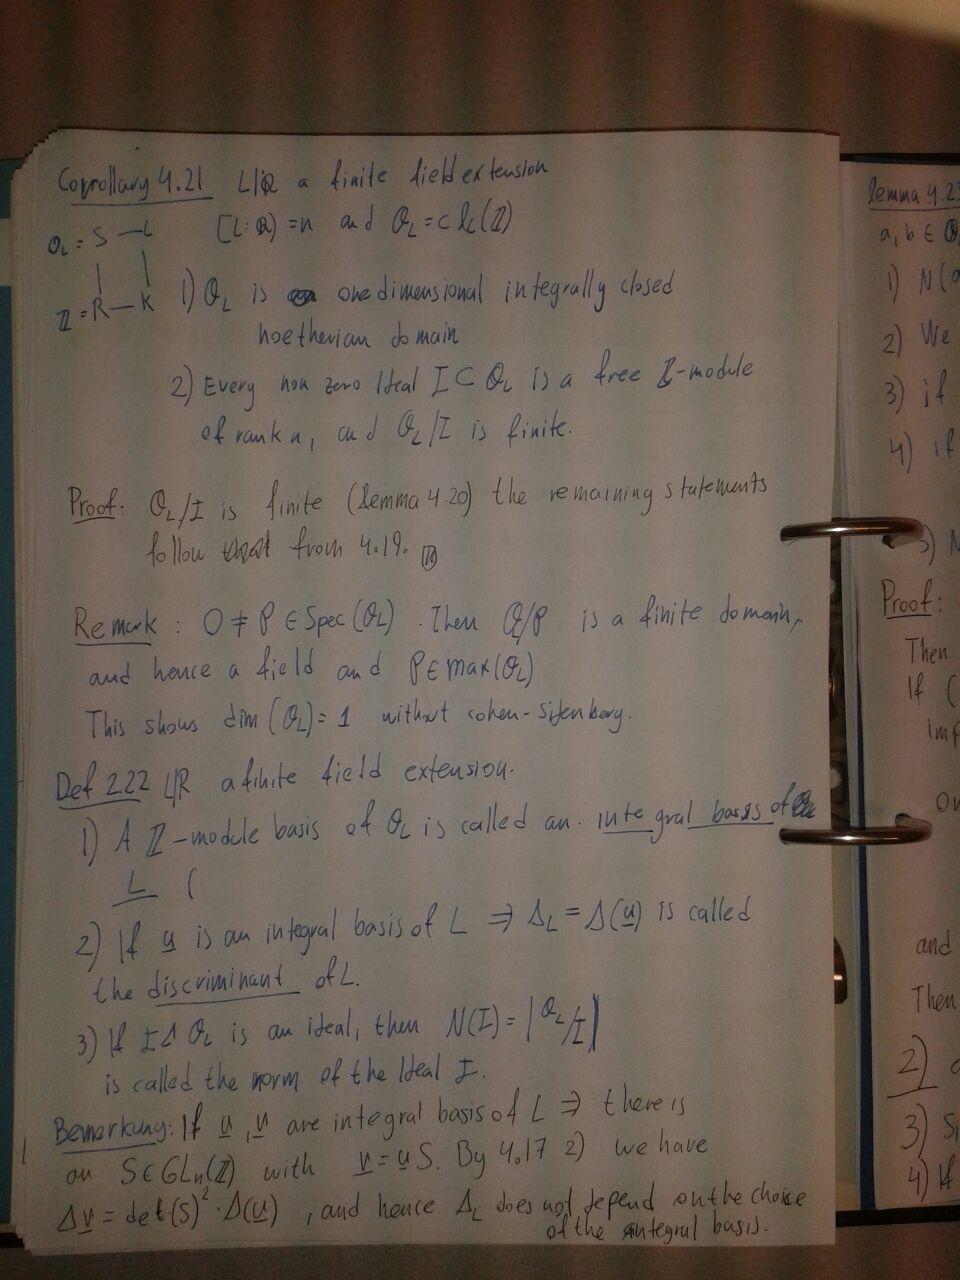 Corrollary 4.21 L|Q a finite field extension
[L:Q) = n and O_L = cl_L(Z)
O_L = S — L
Z = R — K
1) O_L is one dimensional integrally closed
noetherian domain
2) Every non zero Ideal I ⊂ O_L is a free Z-module
of rank n, and O_L/I is finite.
Proof: O_L/I is finite (lemma 4.20) the remaining statements
follow from 4.19.
Remark: 0 ≠ P ∈ Spec(O_L). Then O_L/P is a finite domain,
and hence a field and P ∈ max(O_L)
This shows dim(O_L) = 1 without cohen-Seidenberg.
Def 2.22 L|Q a finite field extension.
1) A Z-module basis of O_L is called an integral basis of
L (
2) If u is an integral basis of L ⇒ Δ_L = Δ(u) is called
the discriminant of L.
3) If I ⊴ O_L is an ideal, then N(I) = |O_L/I|
is called the norm of the Ideal I.
Bemerkung: If u, v are integral basis of L ⇒ there is
an S ∈ GL_n(Z) with v = u S. By 4.17 2) we have
Δv = det(S)² · Δ(u), and hence Δ_L does not depend on the choice
of the integral basis.
lemma 4.23
a, b ∈ O
1) N(a
2) We
3) if
4) if
5) N
Proof:
Then
If (
imp
on
and
Then
2)
3) Si
4) If